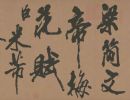 梁简文
帝梅
花赋
米芾